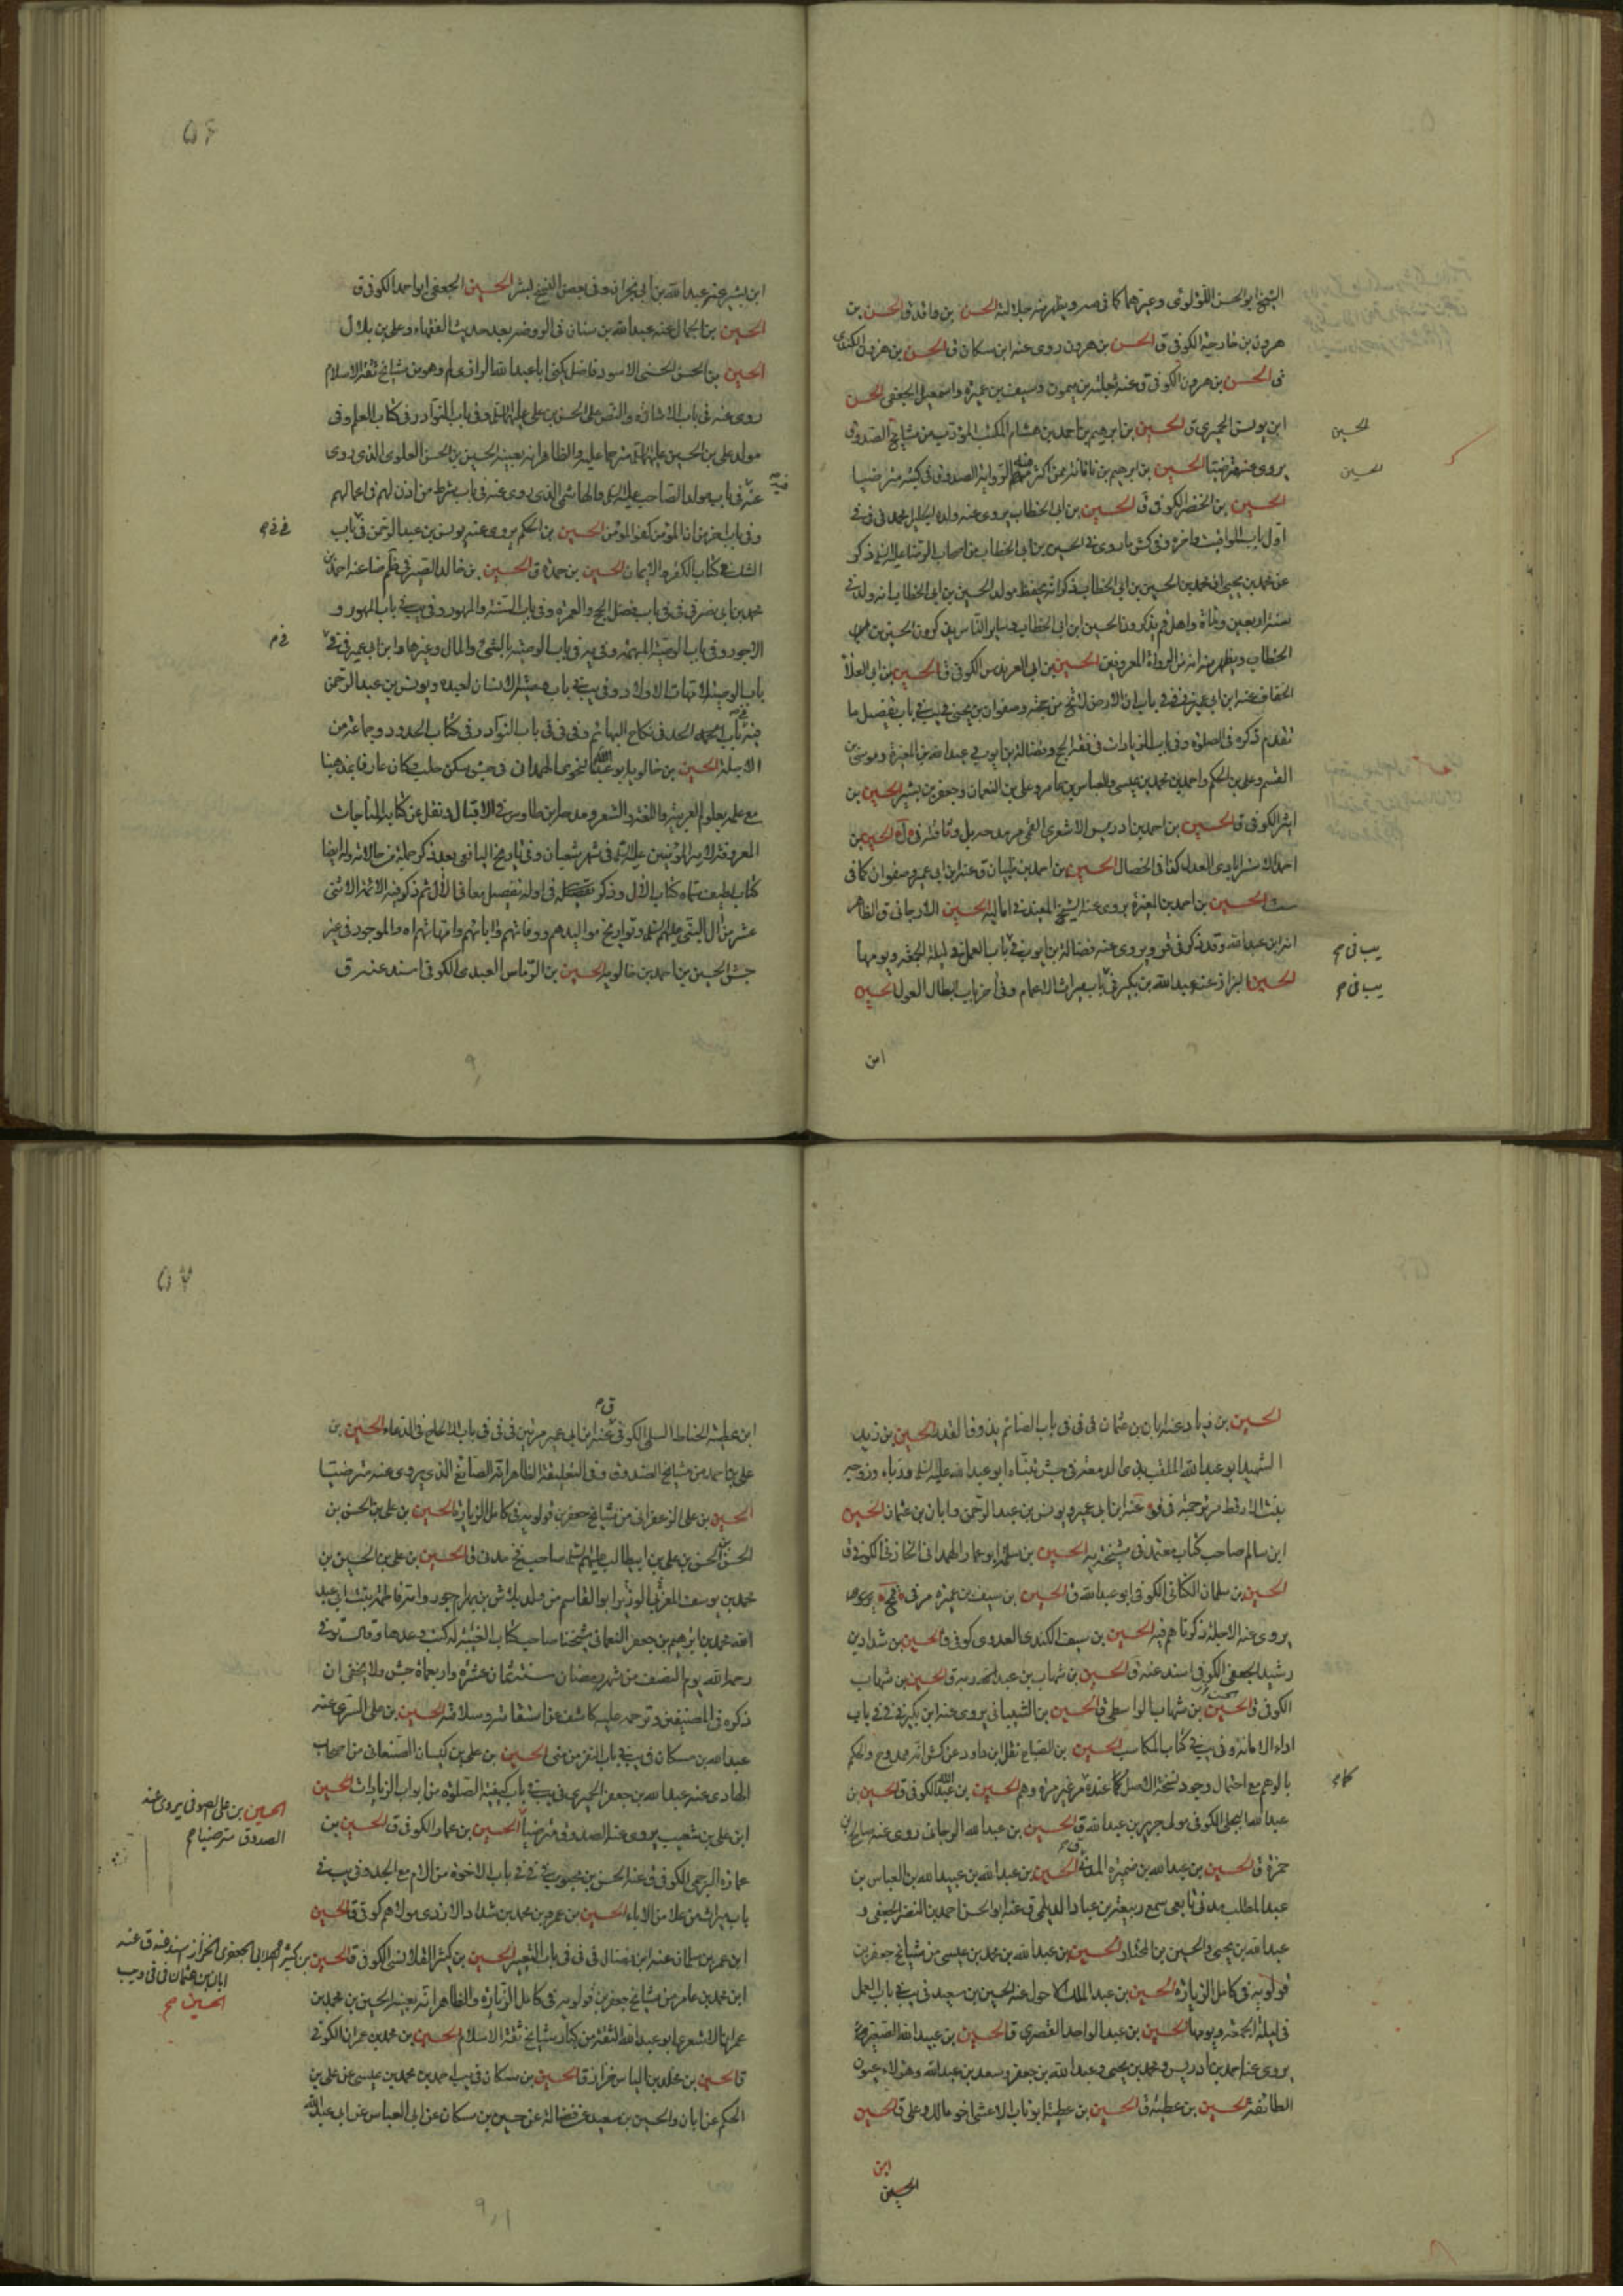 الشیخ ابو الحسن اللؤلؤی وغیرهما کما فی صر ویظهر منه جلالته الحسن بن واقد ق الحسن بن
هرون بن خارجة الکوفی ق الحسن بن هرون روی عنه ابن مسکان ق الحسن بن هرون الکندی
فی الحسن بن هرون الکوفی ق عنه ثعلبة بن میمون وسیف بن عمیرة واسمعیل الجعفی الحسن
ابن یوسف الحمیری ق الحسین بن ابرهیم بن احمد بن هشام المکتب المؤدب من مشایخ الصدوق
یروی عنه مترضیا الحسین بن ابرهیم بن ناتانه ممن اکثر الروایة الصدوق فی کتبه مترضیا
الحسین بن الخضر الکوفی ق الحسین بن ابی الخطاب یروی عنه ولده الجلیل محمد فی
اول باب المواقیت واخره وفی کش ما روی فی الحسین بن ابی الخطاب من اصحاب الرضا علیه السلام ذکر
عن محمد بن یحیی ان محمد بن الحسین بن ابی الخطاب ذکر انه یحفظ مولد الحسین بن ابی الخطاب انه ولد فی
سنة اربعین ومائة واهل قم یذکرون الحسین ابن ابی الخطاب وسایر الناس یذکرون الحسین بن
الخطاب ویظهر منه انه من الرواة المعروفین الحسین بن ابی العرندس الکوفی ق الحسین بن ابی العلاء
الخفاف عنه ابن ابی عمیر فی باب ان الارض لا تخلو من حجة وصفوان بن یحیی فی یب فی باب تفصیل ما
تقدم ذکره فی الصلوة وفی باب الزیادات فی فقه الحج وفضالة بن ایوب وعبد الله بن المغیرة وموسی بن
القسم وعلی بن الحکم واحمد بن محمد بن عیسی والعباس بن عامر وعلی بن النعمان وجعفر بن بشیر الحسین بن
اثیر الکوفی ق الحسین بن احمد بن ادریس الاشعری القمی
احمد الاسترابادی العدل کذا فی الخصال الحسین بن احمد بن ظبیان ق عنه ابن ابی عمیر وصفوان کما فی
ست الحسین بن احمد بن المغیرة یروی عنه الشیخ المفید فی امالیه الحسین الارجانی ق الظاهر
انه ابن عبد الله وقد ذکر فی قر ویروی عنه فضالة بن ایوب فی باب العمل فی لیلة الجمعة ویومها
الحسین البزاز عنه عبد الله بن بکیر فی باب میراث الاعمام وفی اخر باب ابطال العول الحسین
ابن
الحسین
الحسین
یب فی م
یب فی م
۵۶
ابن بشیر عنه عبد الله بن ابی نجران وفی بعض النسخ بشر الحسین الجعفی ابو احمد الکوفی ق
الحسین بن الجمال عنه عبد الله بن سنان فی الروضة بعد حدیث الفقهاء وعلی بن بلال
الحسین بن الحسن الحسنی الاسود فاضل یکنی ابا عبد الله الرازی لم وهو من مشایخ ثقة الاسلام
روی عنه فی باب الاشارة والنص علی الحسن بن علی علیهما السلام وفی باب النوادر فی کتاب العلم وفی
مولد علی بن الحسین علیهما السلام مترحما علیه والظاهر انه بعینه الحسین بن الحسن العلوی الذی روی
عنه فی باب مولد الصاحب علیه السلام والهاشمی الذی روی عنه فی باب شرط من اذن لهم فی اعمالهم
وفی باب اخر من ان المؤمن کفو المؤمن الحسین بن الحکم یروی عنه یونس بن عبد الرحمن فی باب
الشک فی کتاب الکفر والایمان الحسین بن حمزة ق الحسین بن خالد الصیرفی ظم ضا عنه احمد بن
محمد بن ابی نصر فی فی فی باب فضل الحج والعمرة وفی باب السنة والمهور وفی یب فی باب المهور و
الاجور وفی باب الوصیة المبهمة وفی یه فی باب الوصیة بالشئ والمال وغیرها وابن ابی عمیر فی
باب الوصیة لامهات الاولاد وفی یب فی باب وصیة الانسان لعبده ویونس بن عبد الرحمن
فیه فی باب الحد فی نکاح البهائم وفی فی فی باب النوادر فی کتاب الحدود وجماعة من
الاجلة الحسین بن خالویه ابو عبد الله النحوی الهمدانی فی جش سکن حلب وکان عارفا بمذهبنا
مع علمه بعلوم العربیة واللغة والشعر ومدحه ابن طاوس فی الاقبال ونقل عن کتابه المناجات
المعروفة لامیر المؤمنین علیه السلام فی شهر شعبان وفی تاریخ الیافعی بعد ذکر جملة من حالاته وله ایضا
کتاب لطیف سماه کتاب الآل وذکر فی اوله تفصیل معانی الآل ثم ذکر فیه الائمة الاثنی
عشر من آل النبی علیهم السلام وتواریخ موالیدهم ووفاتهم وآبائهم وامهاتهم اه والموجود فی غیر
جش الحسین بن احمد بن خالویه الحسین بن الرماس العبدی الکوفی اسند عنه ق
الحسین بن زیاد عنه ابان بن عثمان فی فی فی باب الصائم یذوق القدر الحسین بن زید
الشهید ابو عبد الله الملقب بذی الدمعة فی جش تبناه ابو عبد الله علیه السلام ورباه وزوجه
بنت الارقط عنه ابن ابی عمیر ویونس بن عبد الرحمن وابان بن عثمان الحسین
ابن سالم صاحب کتاب معتمد فی مشیخة یه الحسین بن سلمة ابو عمار الهمدانی الخازنی الکوفی ق
الحسین بن سلمان الکنانی الکوفی ابو عبد الله ق الحسین بن سیف بن عمیرة
یروی عنه الاجلة ذکرناهم فیه الحسین بن سیف الکندی العدوی کوفی ق الحسین بن شداد بن
رشید الجعفی الکوفی اسند عنه ق الحسین بن شهاب بن عبد ربه ق الحسین بن شهاب
الکوفی ق الحسین بن شهاب الواسطی ق الحسین بن الشیبانی یروی عنه ابن بکیر فی فی فی باب
اداء الامانة وفی یب فی کتاب المکاسب الحسین بن الصباح نقل ابن داود عن کش انه ممدوح والحکم
بالوهم مع احتمال وجود نسخة الاصل کما عنده غیر مرة وهم الحسین بن عبد الله الکوفی ق الحسین بن
عبد الله البجلی الکوفی مولی جریر بن عبد الله ق الحسین بن عبد الله الرجانی روی عنه صالح بن
حمزة ق الحسین بن عبد الله بن ضمیرة المدنی الحسین بن عبد الله بن عبید الله بن العباس بن
عبد المطلب مدنی تابعی سمع ربیعة بن عباد الدیلمی ق عنه ابو الحسن احمد بن النضر الجعفی و
عبد الله بن یحیی والحسین بن المختار الحسین بن عبد الله بن محمد بن عیسی من مشایخ جعفر بن
قولویه فی کامل الزیارة الحسین بن عبد الملک الاحول عنه الحسین بن سعید فی یب فی باب العمل
فی لیلة الجمعة ویومها الحسین بن عبد الواحد القصری ق الحسین بن عبید الله الصغیر
یروی عنه احمد بن ادریس ومحمد بن یحیی وعبد الله بن جعفر وسعد بن عبد الله وهؤلاء عیون
الطائفة الحسین بن عطیة ق الحسین بن عطیة ابو ناب الاعشی اخو مالک وعلی ق الحسین
ابن
الحسین
۵۷
ابن عطیة الحناط السلمی الکوفی ق عنه ابن ابی عمیر مرتین فی فی فی باب الالحاح فی الدعاء الحسین بن
علی بن احمد من مشایخ الصدوق وفی التعلیقة الظاهر انه الصائغ الذی یروی عنه مترضیا
الحسین بن علی الزعفرانی من مشایخ جعفر بن قولویه فی کامل الزیارة الحسین بن علی بن الحسن بن
الحسن بن الحسن بن علی بن ابیطالب علیهم السلام صاحب فخ مدنی ق الحسین بن علی بن الحسین بن
محمد بن یوسف المغربی الوزیر ابو القاسم من ولد بلاش بن بهرام جور وامه فاطمة بنت ابی عبد
الله محمد بن ابرهیم بن جعفر النعمانی شیخنا صاحب کتاب الغیبة له کتب وعدها وقال توفی
رحمه الله یوم النصف من شهر رمضان سنة ثمان عشرة واربعمائة جش ولا یخفی ان
ذکره فی المصنفین وترحمه علیه کاشف عن استقامته وسلامته الحسین بن علی السری عنه
عبد الله بن مسکان فی یب فی باب النفر من منی الحسین بن علی بن کیسان الصنعانی من اصحاب
الهادی عنه عبد الله بن جعفر الحمیری فی یب فی باب کیفیة الصلوة من ابواب الزیادات الحسین
ابن علی بن شعیب یروی عنه الصدوق مترضیا الحسین بن عمار الکوفی ق الحسین بن
عمارة البرجمی الکوفی ق عنه الحسن بن محبوب فی فی فی باب الاخوة من الام مع الجد وفی یب فی
باب میراث من علا من الاباء الحسین بن عمرو بن محمد بن شداد الازدی مولاهم کوفی ق الحسین
ابن عمر بن سلمان عنه ابن فضال فی فی فی باب التعبیر الحسین بن کثیر القلانسی الکوفی ق الحسین بن کثیر الهلالی الجعفری الخزاز اسند عنه ق عنه
ابن محمد بن عامر من مشایخ جعفر بن قولویه فی کامل الزیارة والظاهر انه بعینه الحسین بن محمد بن
عمران الاشعری ابو عبد الله الثقة من کبار مشایخ ثقة الاسلام الحسین بن محمد بن عمران الکوفی
ق الحسین بن مخلد بن الیاس خزاز ق الحسین بن مسکان فی یب احمد بن محمد بن عیسی عن علی بن
الحکم عن ابان والحسین بن سعید عن فضالة عن حسین بن مسکان عن ابی العباس عن ابی عبد الله
الحسین بن علی الصوفی یروی عنه
الصدوق مترضیا م
ابان بن عثمان فی فی وفی یب
الحسین م